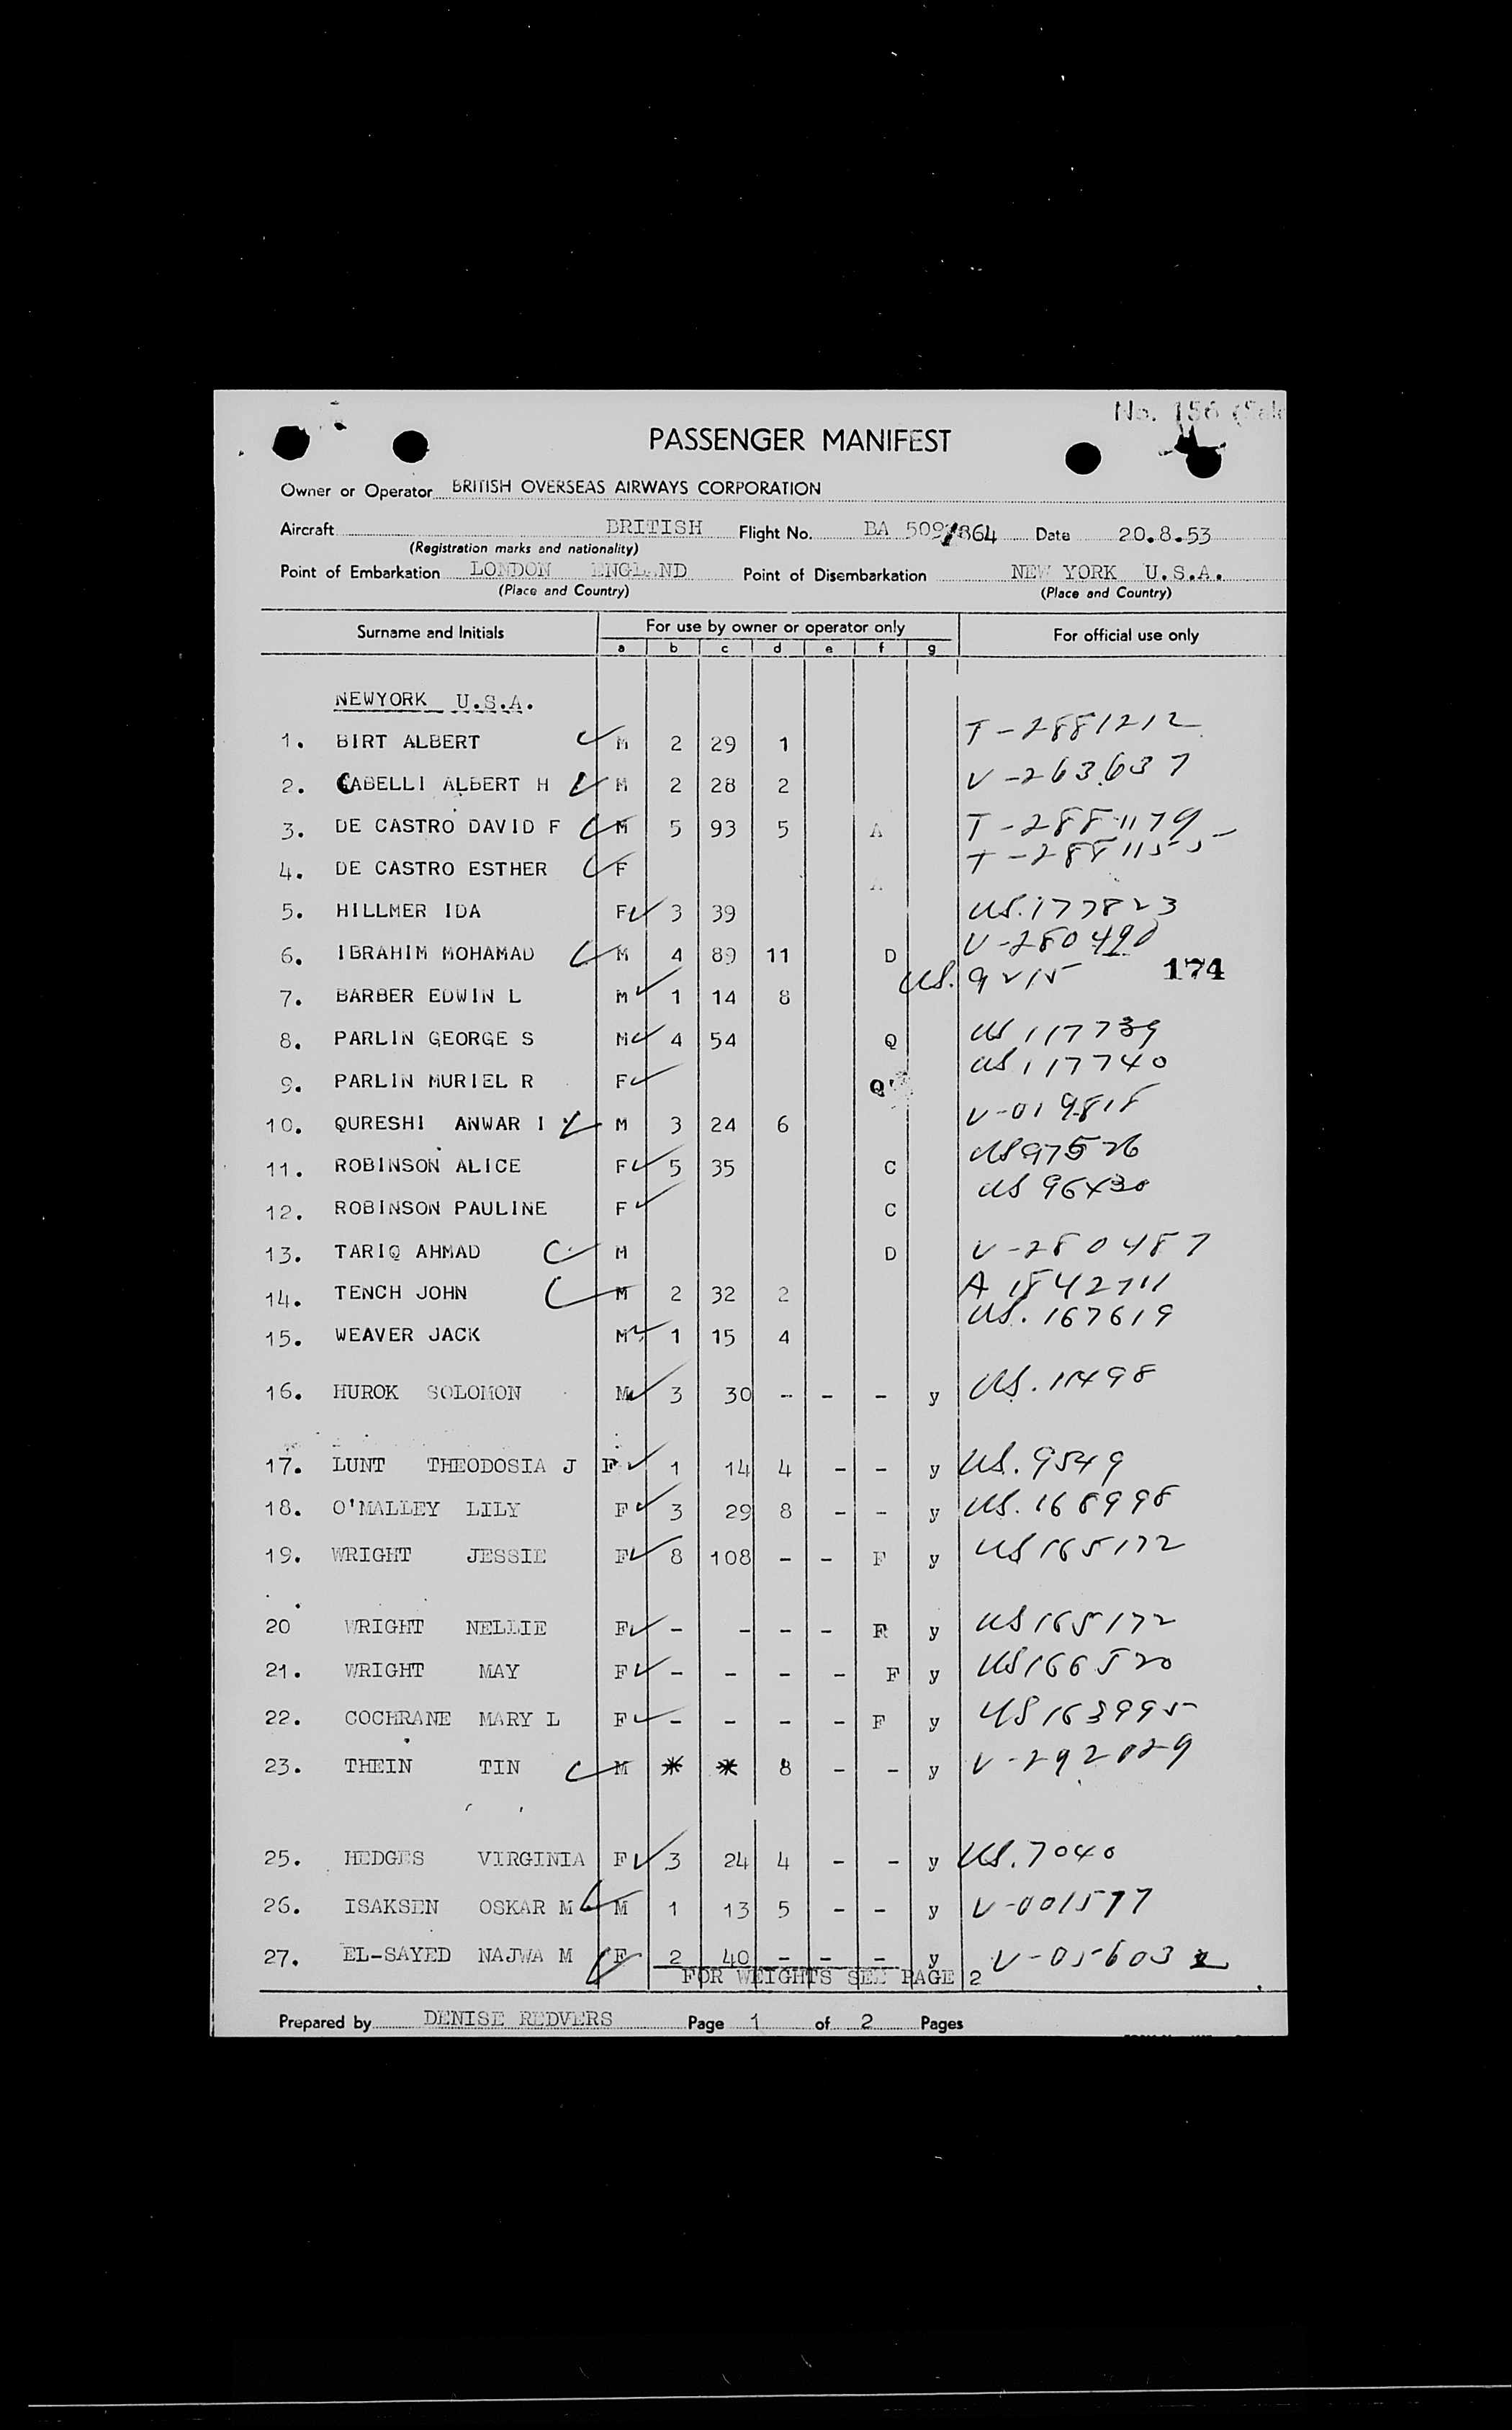 No. 156 (Sale
PASSENGER MANIFEST
Owner or Operator BRITISH OVERSEAS AIRWAYS CORPORATION
Aircraft BRITISH Flight No. BA 509/864 Date 20.8.53
(Registration marks and nationality)
Point of Embarkation LONDON ENGLAND Point of Disembarkation NEW YORK U.S.A.
(Place and Country) (Place and Country)
Surname and Initials For use by owner or operator only For official use only
a b c d e f g
NEWYORK U.S.A.
1. BIRT ALBERT M 2 29 1 T-2881212
2. CABELLI ALBERT H M 2 28 2 V-263637
3. DE CASTRO DAVID F M 5 93 5 A T-2881179
4. DE CASTRO ESTHER F A T-2881155
5. HILLMER IDA F 3 39 US.177823
6. IBRAHIM MOHAMAD M 4 89 11 D V-280490
7. BARBER EDWIN L M 1 14 8 US. 9215 174
8. PARLIN GEORGE S M 4 54 Q US 117739
9. PARLIN MURIEL R F Q US 117740
10. QURESHI ANWAR I M 3 24 6 V-019818
11. ROBINSON ALICE F 5 35 C US 97526
12. ROBINSON PAULINE F C US 96430
13. TARIQ AHMAD M D V-280487
14. TENCH JOHN M 2 32 2 A 1842711
15. WEAVER JACK M 1 15 4 US. 167619
16. HUROK SOLOMON M 3 30 - - - y US. 11498
17. LUNT THEODOSIA J F 1 14 4 - - y US. 9549
18. O'MALLEY LILY F 3 29 8 - - y US. 168998
19. WRIGHT JESSIE F 8 108 - - F y US 165172
20 WRIGHT NELLIE F - - - - F y US 165172
21. WRIGHT MAY F - - - - F y US 166520
22. COCHRANE MARY L F - - - - F y US 163995
23. THEIN TIN M * * 8 - - y V-292029
25. HEDGES VIRGINIA F 3 24 4 - - y US. 7040
26. ISAKSEN OSKAR M M 1 13 5 - - y V-001577
27. EL-SAYED NAJWA M F 2 40 - - - y V-056032
FOR WEIGHTS SEE PAGE 2
Prepared by DENISE REDVERS Page 1 of 2 Pages